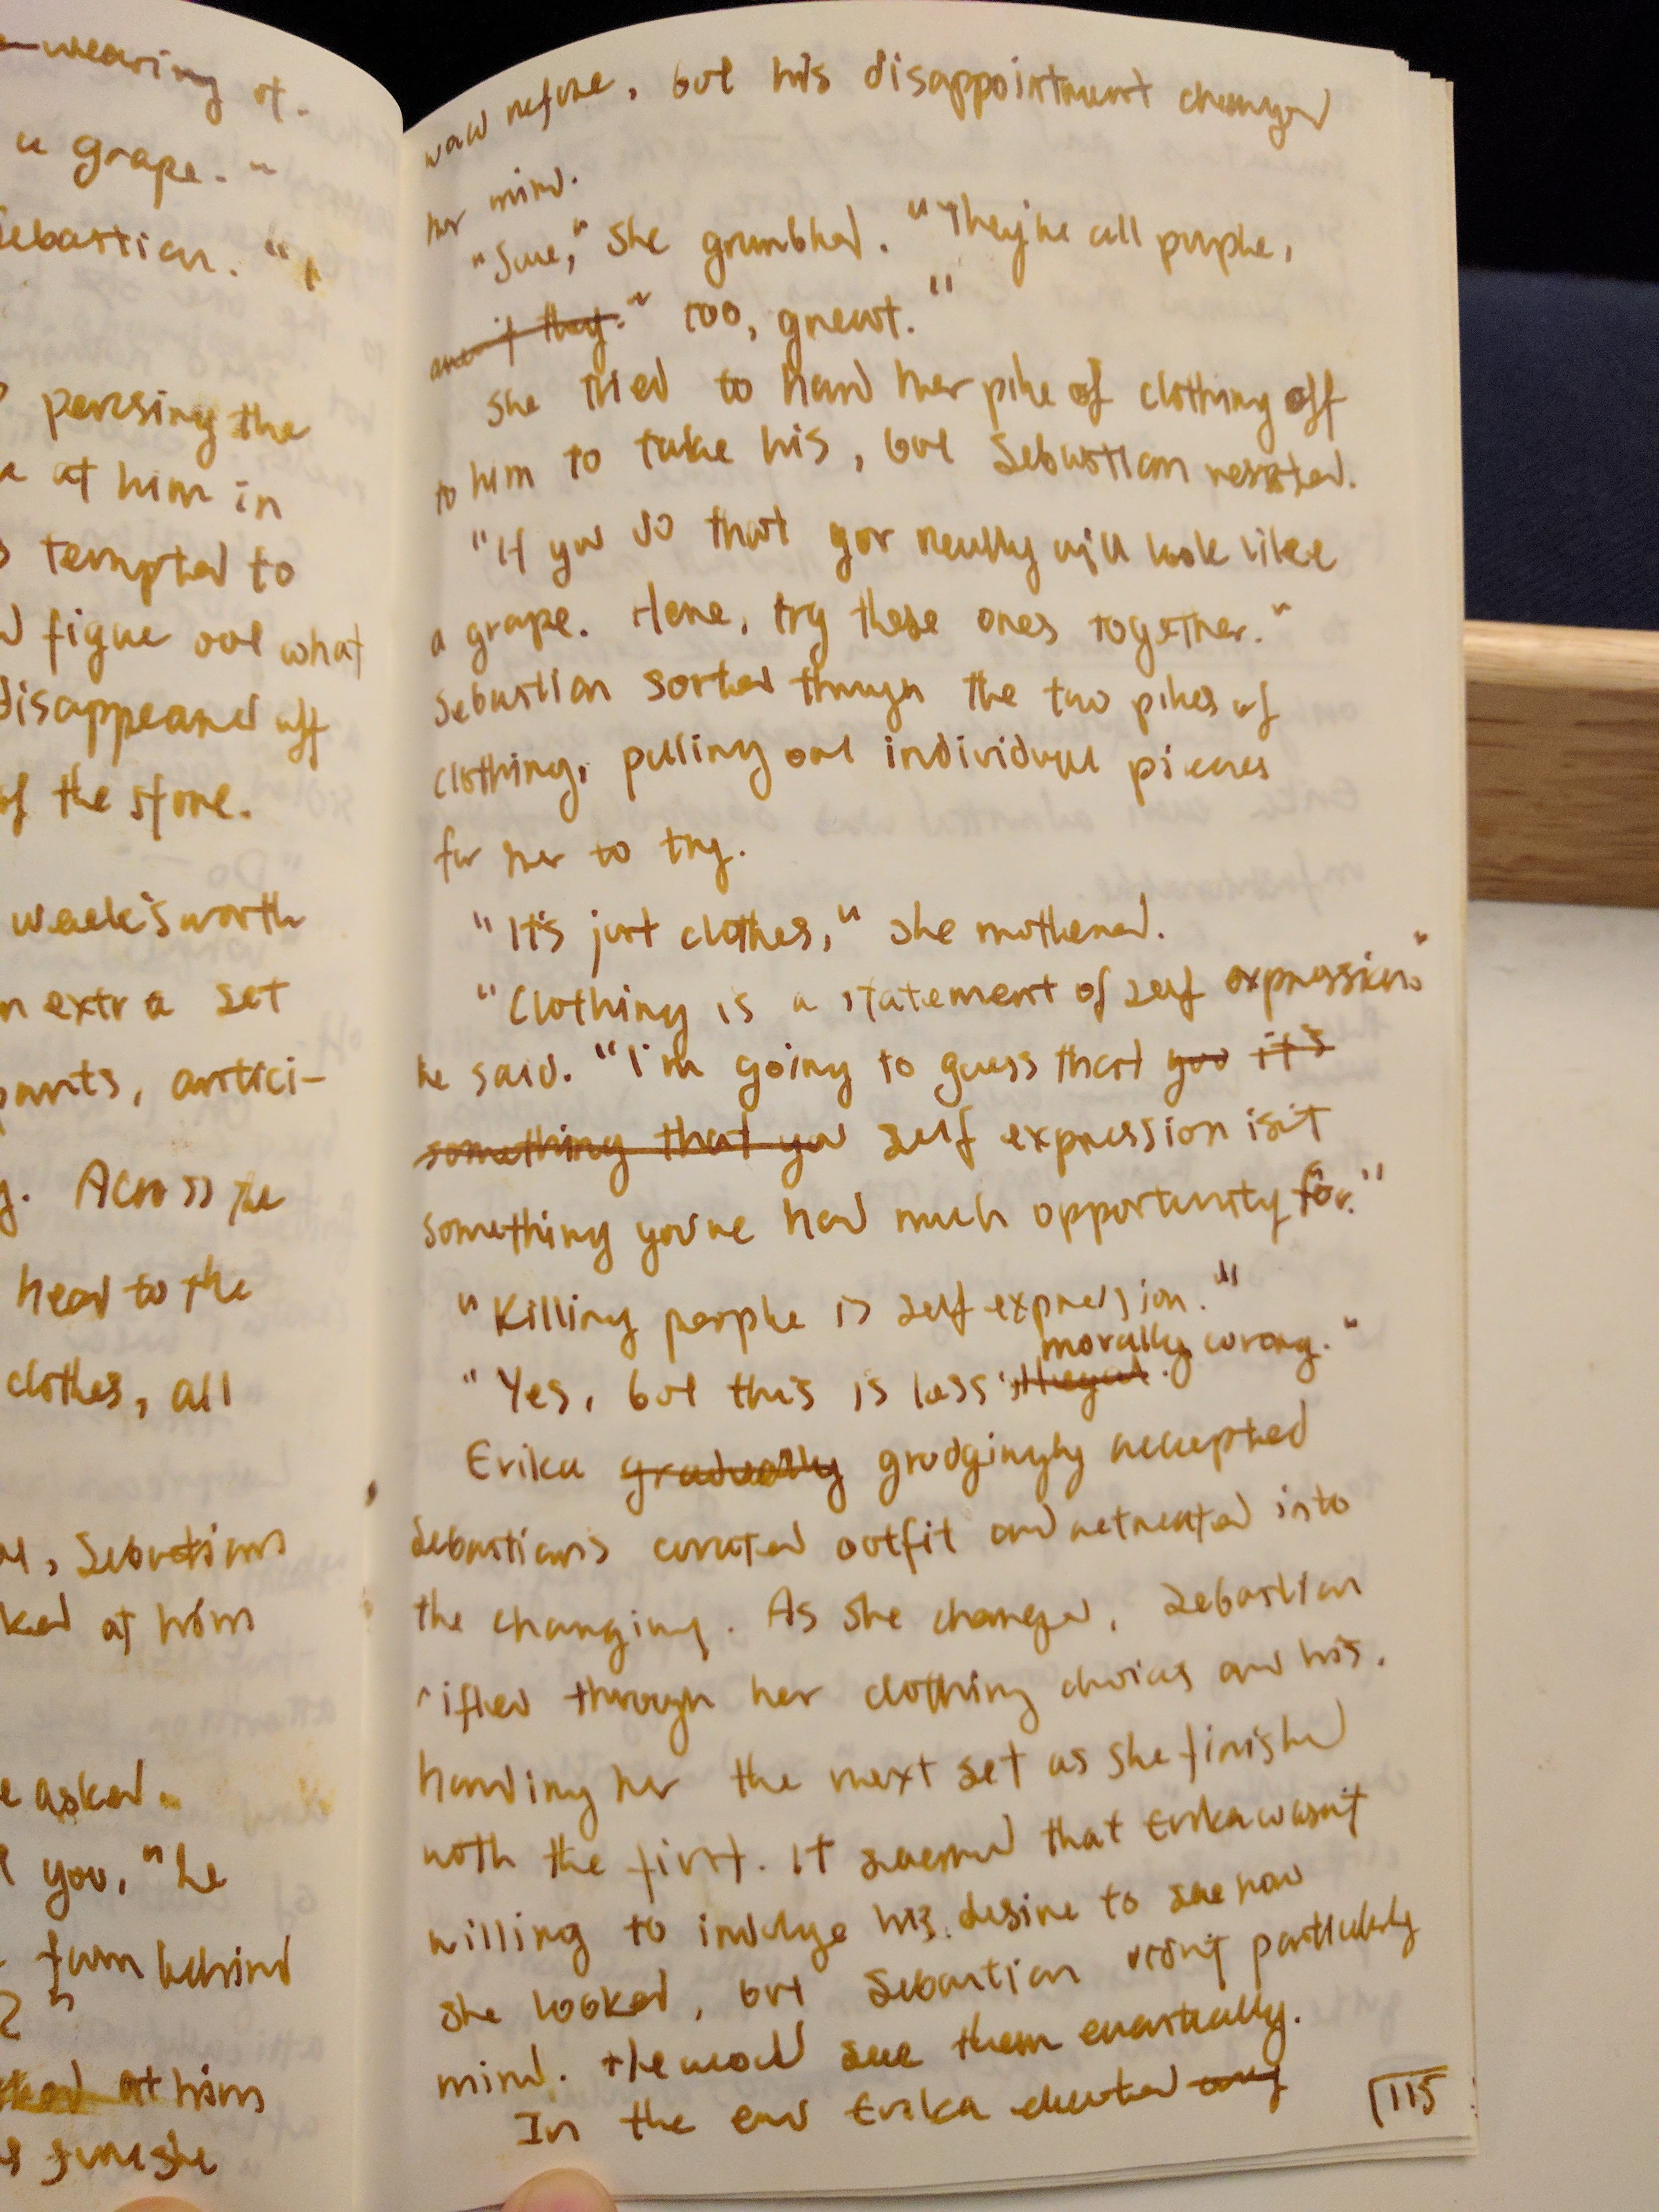 -wearing of.
a grape."
Sebastian. "I
perusing the
at him in
tempted to
figure out what
disappeared off
of the store.
week's worth
extra set
pants, antici-
Across the
head to the
clothes, all
Sebastian's
at him
asked.
you," he
turn behind
at him
sure she
would refuse, but his disappointment changed
her mind.
"Sure," she grumbled. "They're all purple,
aren't they." too, great."
She tried to hand her pile of clothing off
to him to take his, but Sebastian resisted.
"If you do that you really will look like
a grape. Here, try these ones together."
Sebastian sorted through the two piles of
clothing, pulling out individual pieces
for her to try.
"It's just clothes," she muttered.
"Clothing is a statement of self expression."
he said. "I'm going to guess that you it's
something that you self expression isn't
something you've had much opportunity for."
"Killing people is self expression."
morally wrong."
"Yes, but this is less illegal.
Erika gradually grudgingly accepted
Sebastian's curated outfit and retreated into
the changing. As she changed, Sebastian
rifled through her clothing choices and his,
handing her the next set as she finished
with the first. It seemed that Erika wasn't
willing to indulge his desire to see how
she looked, but Sebastian didn't particularly
mind. He would see them eventually.
In the end Erika elected only
115